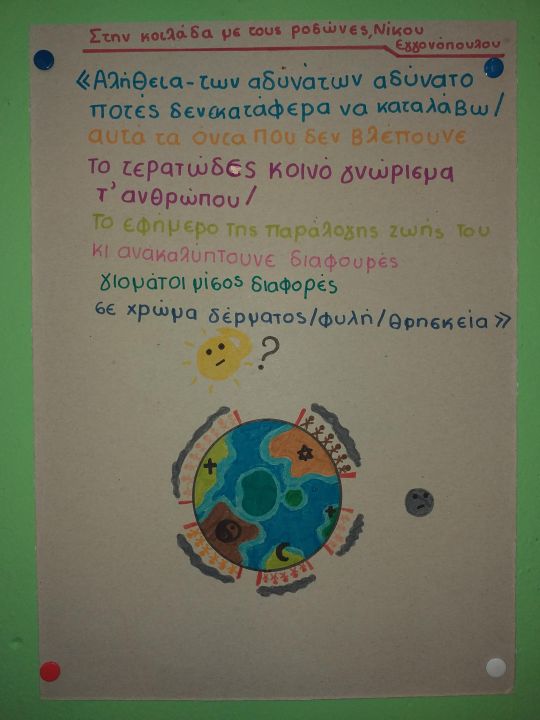 Στην κοιλάδα με τους ροδώνες, Νίκου
Εγγονόπουλου
«Αλήθεια - των αδύνατων αδύνατο
ποτές δενεκατάφερα να καταλάβω/
αυτά τα όντα που δεν βλέπουνε
το τερατώδες κοινό γνώρισμα
τ' ανθρώπου/
το εφήμερο της παράλογης ζωής του
κι ανακαλύπτουνε διαφουρές
γιομάτοι μίσος διαφορές
σε χρώμα δέρματος/φυλή/θρησκεία»
?